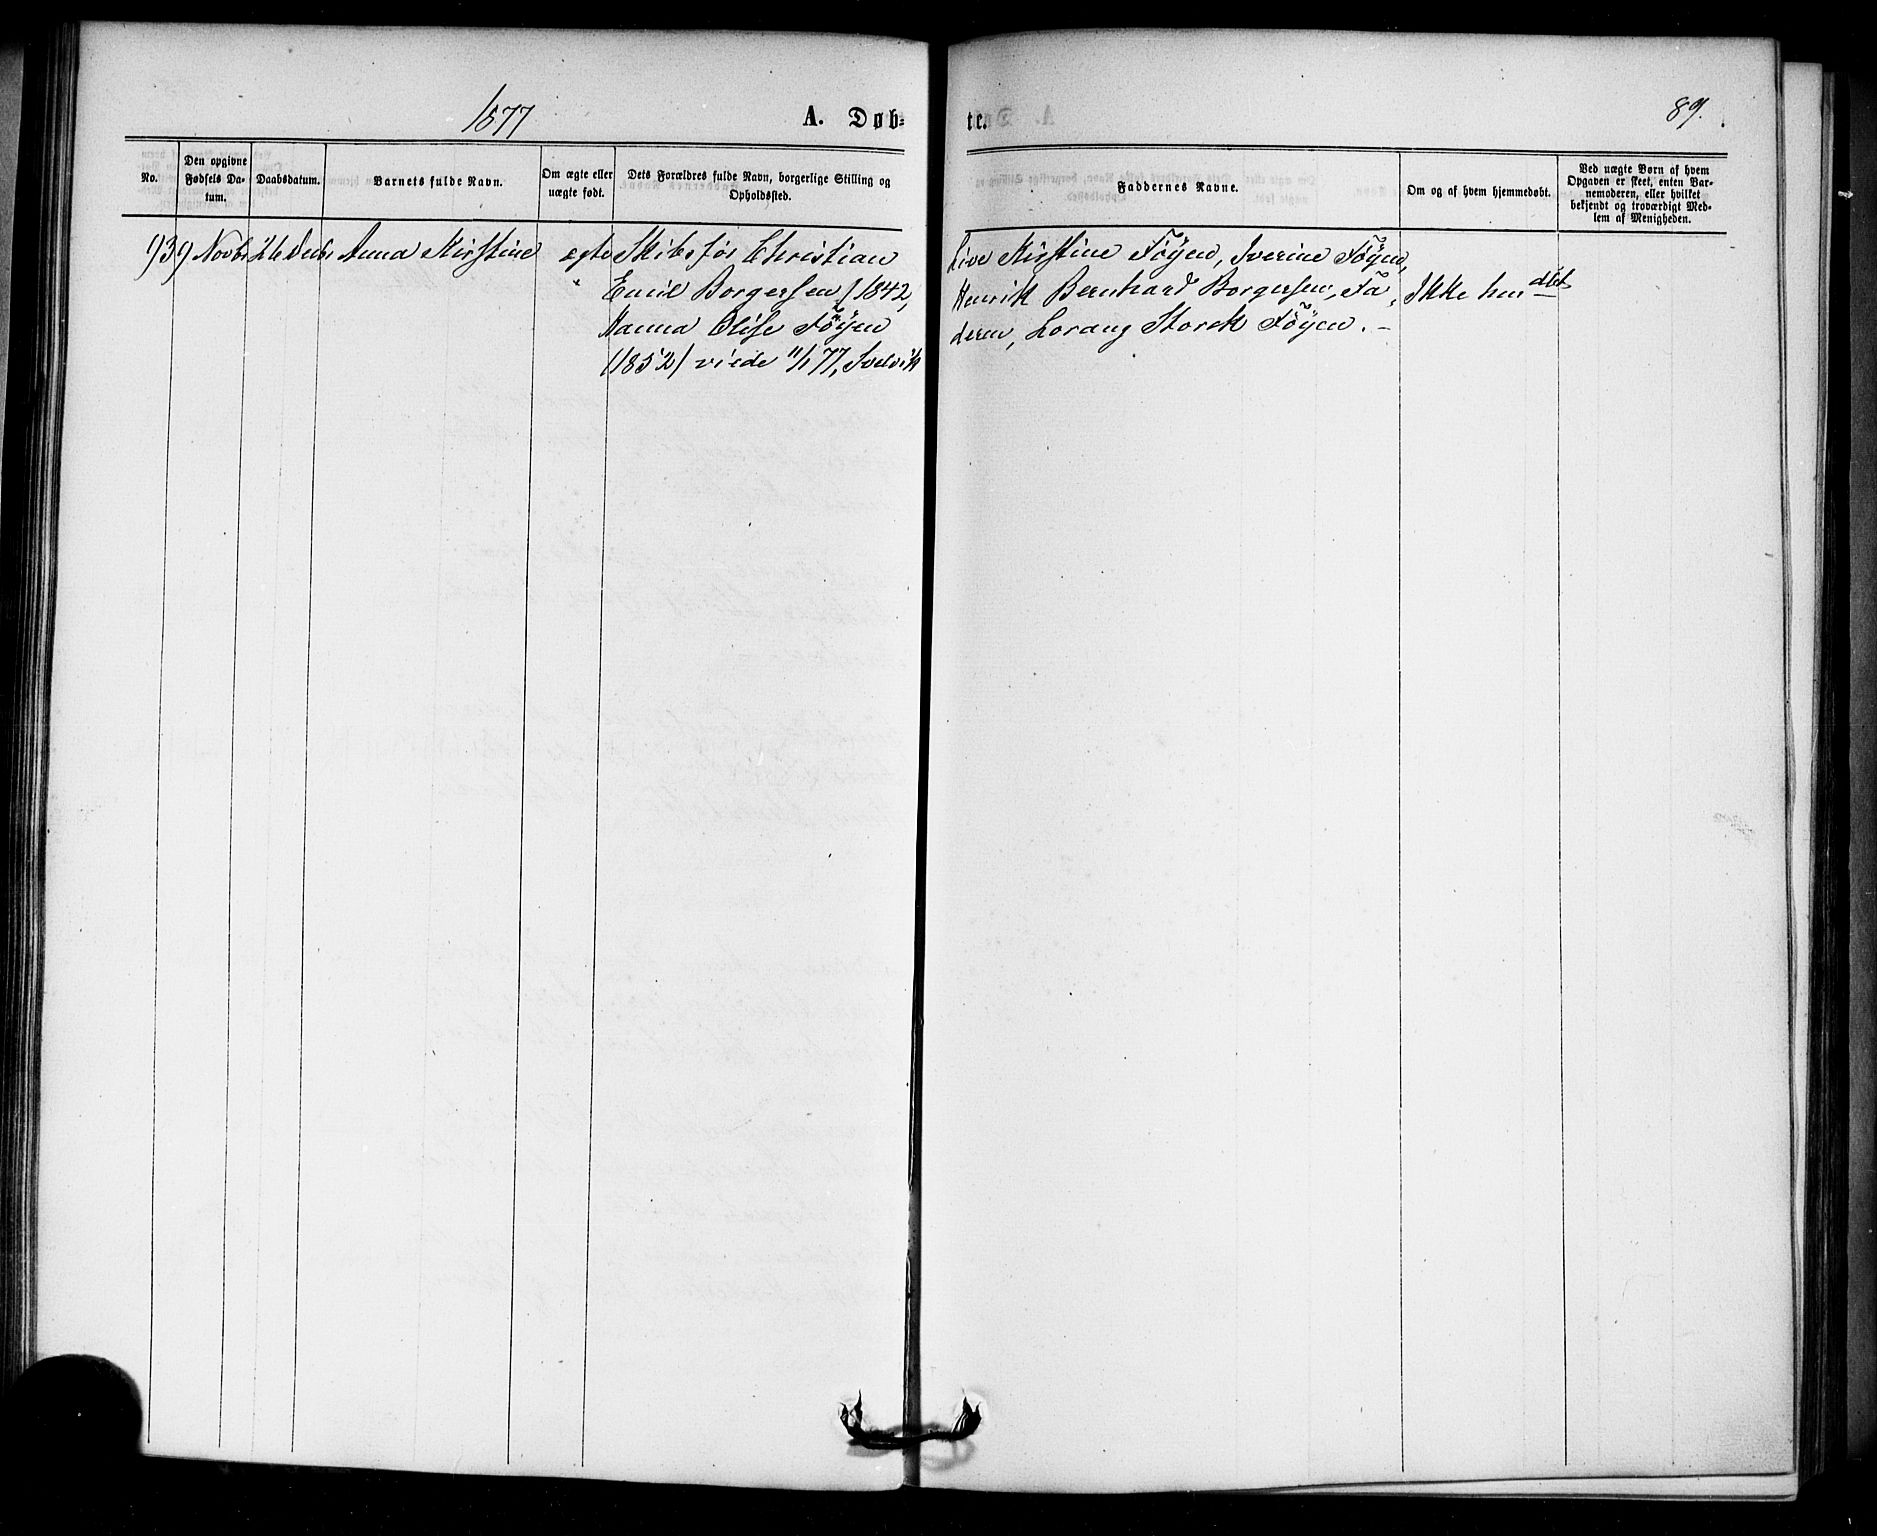 1877
A. Døb-
te.
89.
No.
Den opgivne
Fødsels Da-
tum.
Daabsdatum.
Barnets fulde Navn.
Om ægte eller
uægte født.
Dets Forældres fulde Navn, borgerlige Stilling og
Opholdssted.
Faddernes Navne.
Om og af hvem hjemmedøbt.
Ved uægte Børn af hvem
Opgaven er skeet, enten Bar-
nemoderen, eller hvilket
bekjendt og troværdigt Med-
lem af Menigheden.
93 9 Novbr 26 Decbr Anna Kirstine egte Skibsfør Christian
Emil Borgersen (1842,
Hanna Elise Föyen
(1852) viede 11/1 77, Svelvik
Live Kirstine Föyen, Iverine Föyen,
Henrik Bernhard Borgersen, Fa-
deren, Lorang Storck Föyen. -
Ikke hmdbt